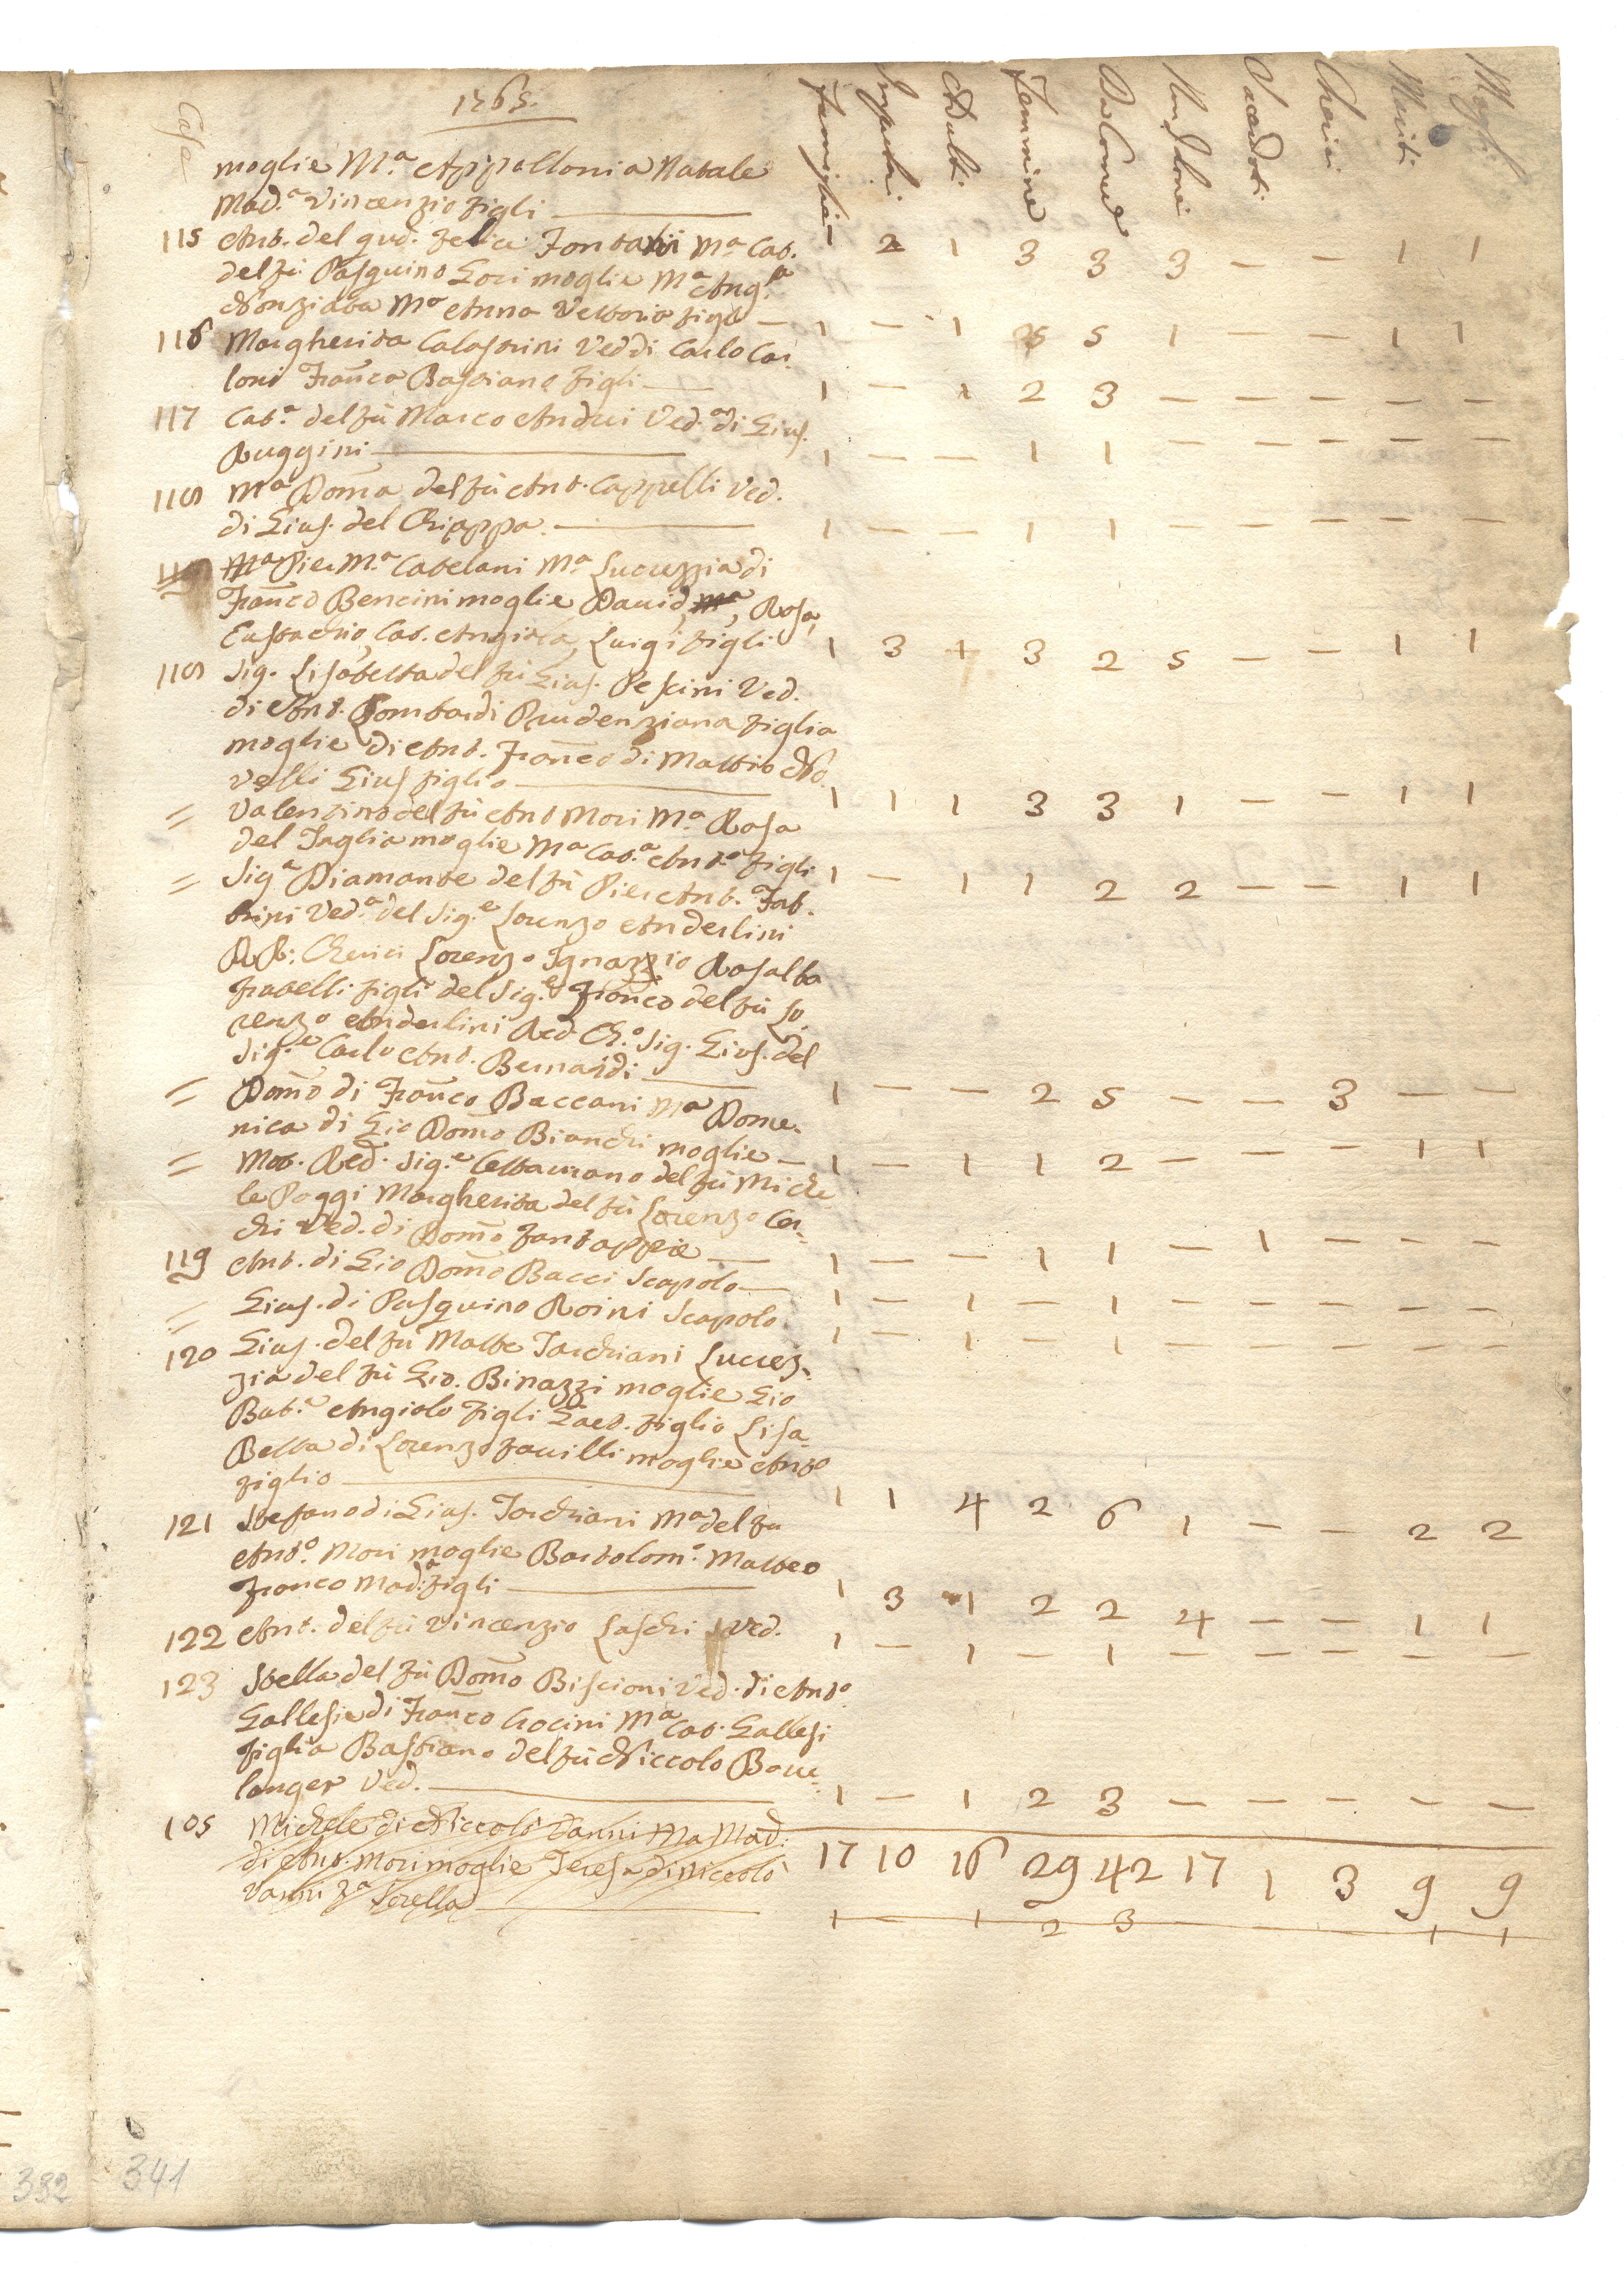 Case 1765. Famiglie Impuberi Adulti Femmine Da Comune Non da Com. Sacerdoti Cherici Mariti Mogli
moglie M.ª Appallonia Natale
Mad.ª Vincenzio figli — – 2 1 3 3 3 – – 1 1
115 Ant. del qud. Felice Fontani M.ª Cat.
del fù Pasquino Gori moglie M.ª Ang.ª
Nonziata M.ª Anna Vettoria figli — 1 – 1 5 5 1 – – 1 1
116 Margherita Calastrini Ved di Carlo Car-
loni Franco Bastiano figli — 1 – 1 2 3 – – – – –
117 Cat.ª del fù Marco Andrei Ved.ª di Gius.
Ruggini — 1 – – 1 1 – – – – –
118 M.ª Doma del fù Ant. Cappelli Ved.
di Gius. del Chiappa. — 1 – – 1 1 – – – – –
Pier M.ª Catelani M.ª Lucrezzia di
Franco Bencini moglie David, Mª, Rosa,
Eustachio, Cat. Angiola, Luigi figli 1 3 + 3 2 5 – – 1 1
118 Sig. Lisabetta del fù Gius. Pescini Ved.
di Ant. Lombardi Prudenziana figlia
moglie di Ant. Franco di Mattio No-
velli Gius figlio — 1 1 1 3 3 1 – – 1 1
= Valentino del fù Ant Mori M.ª Rosa
del Taglia moglie M.ª Cat.ª Ant.º figli 1 – 1 1 2 2 – – 1 1
= Sig.ª Diamante del fù Pier Ant. Fab-
brini Ved.ª del Sig.e Lorenzo Anderlini
RR: Cherici Lorenzo Ignazzio Rosalba
fratelli figli del Sig.e Franco del fù Lo-
renzo Anderlini Red. Ch.º Sig. Gius. del
Sig.e Carlo Ant. Bernardi — 1 – – 2 5 – – 3 – –
= Domo di Franco Baccani M.ª Dome-
nica di Gio Domo Bianchi moglie — 1 – 1 1 2 – – – 1 1
= Mol. Red. Sig.e Cettaurano del fù Miche
le Poggi Margherita del fù Lorenzo Cec-
chi Ved. di Domo Fantappie — 1 – – 1 1 – 1 – – –
119 Ant. di Gio Domo Bacci Scapolo — 1 – 1 – 1 – – – – –
= Gius. di Pasquino Roini Scapolo. 1 – 1 – 1 – – – – –
120 Gius. del fù Matte Torchiani Lucrez-
zia del fù Gio. Binazzi moglie Gio
Bat.ª Angiolo figli Gaet. figlio Lisa-
Betta di Lorenzo Favilli moglie Ant.º
figlio — 1 1 4 2 6 1 – – 2 2
121 Stefano di Gius. Torchiani M.ª del fu
Ant.º Mori moglie Bartolom.º Matteo
Franco Mad.ª figli — 1 3 1 2 2 4 – – 1 1
122 Ant. del fù Vincenzio Laschi Ved. 1 – 1 – 1 – – – – –
123 Stella del fù Domo Biscioni Ved. di Ant.º
Gallesi e di Franco Crocini M.ª Cat. Gallesi
figlia Bastiano del fù Niccolo Bou-
langer Ved. — 1 – 1 2 3 – – – – –
105 Michele di Niccolò Vanni Ma Mad.
di Ant. Mori moglie Teresa di Niccolò
Vanni Sorella —
17 10 16 29 42 17 1 3 9 9
1 – 1 2 3 – – – 1 1
382 341